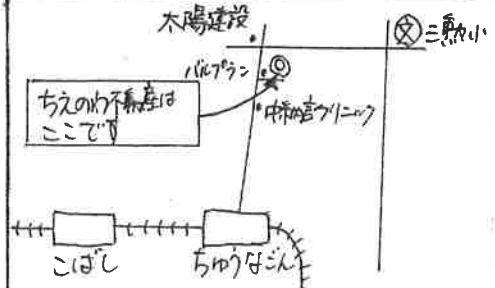 太陽建設
文 三勲小
バルプラン
ちえのわ不動産は
ここです
中納言クリニック
こばし
ちゅうなごん